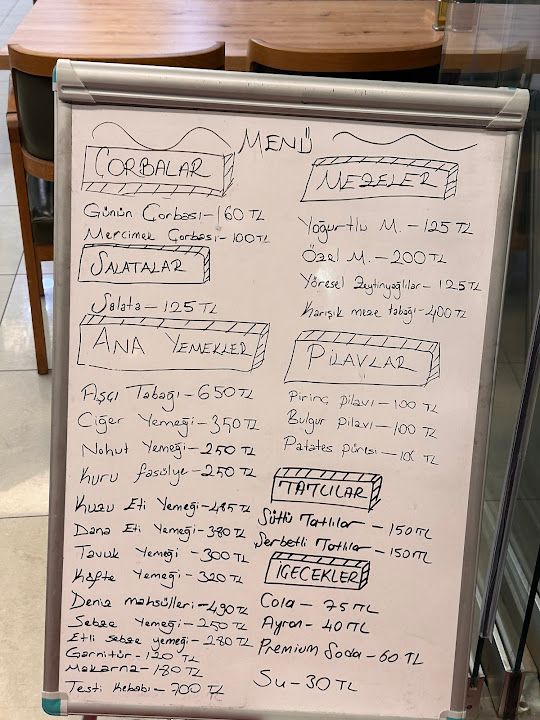 MENÜ
ÇORBALAR
Günün Çorbası - 160 TL
Mercimek Çorbası - 100 TL
SALATALAR
Salata - 125 TL
ANA YEMEKLER
Aşçı Tabağı - 650 TL
Ciğer Yemeği - 350 TL
Nohut Yemeği - 250 TL
Kuru fasülye - 250 TL
Kuzu Eti Yemeği - 485 TL
Dana Eti Yemeği - 380 TL
Tavuk Yemeği - 300 TL
Köfte Yemeği - 320 TL
Deniz mahsülleri - 490 TL
Sebze Yemeği - 250 TL
Etli sebze yemeği - 280 TL
Garnitür - 120 TL
Makarna - 180 TL
Testi Kebabı - 700 TL
MEZELER
Yoğurtlu M. - 125 TL
Özel M. - 200 TL
Yöresel Zeytinyağlılar - 125 TL
Karışık meze tabağı - 400 TL
PİLAVLAR
Pirinç pilavı - 100 TL
Bulgur pilavı - 100 TL
Patates püresi - TL
TATLILAR
Sütlü Tatlılar - 150 TL
Şerbetli Tatlılar - 150 TL
İÇECEKLER
Cola - 75 TL
Ayran - 40 TL
Premium Soda - 60 TL
Su - 30 TL